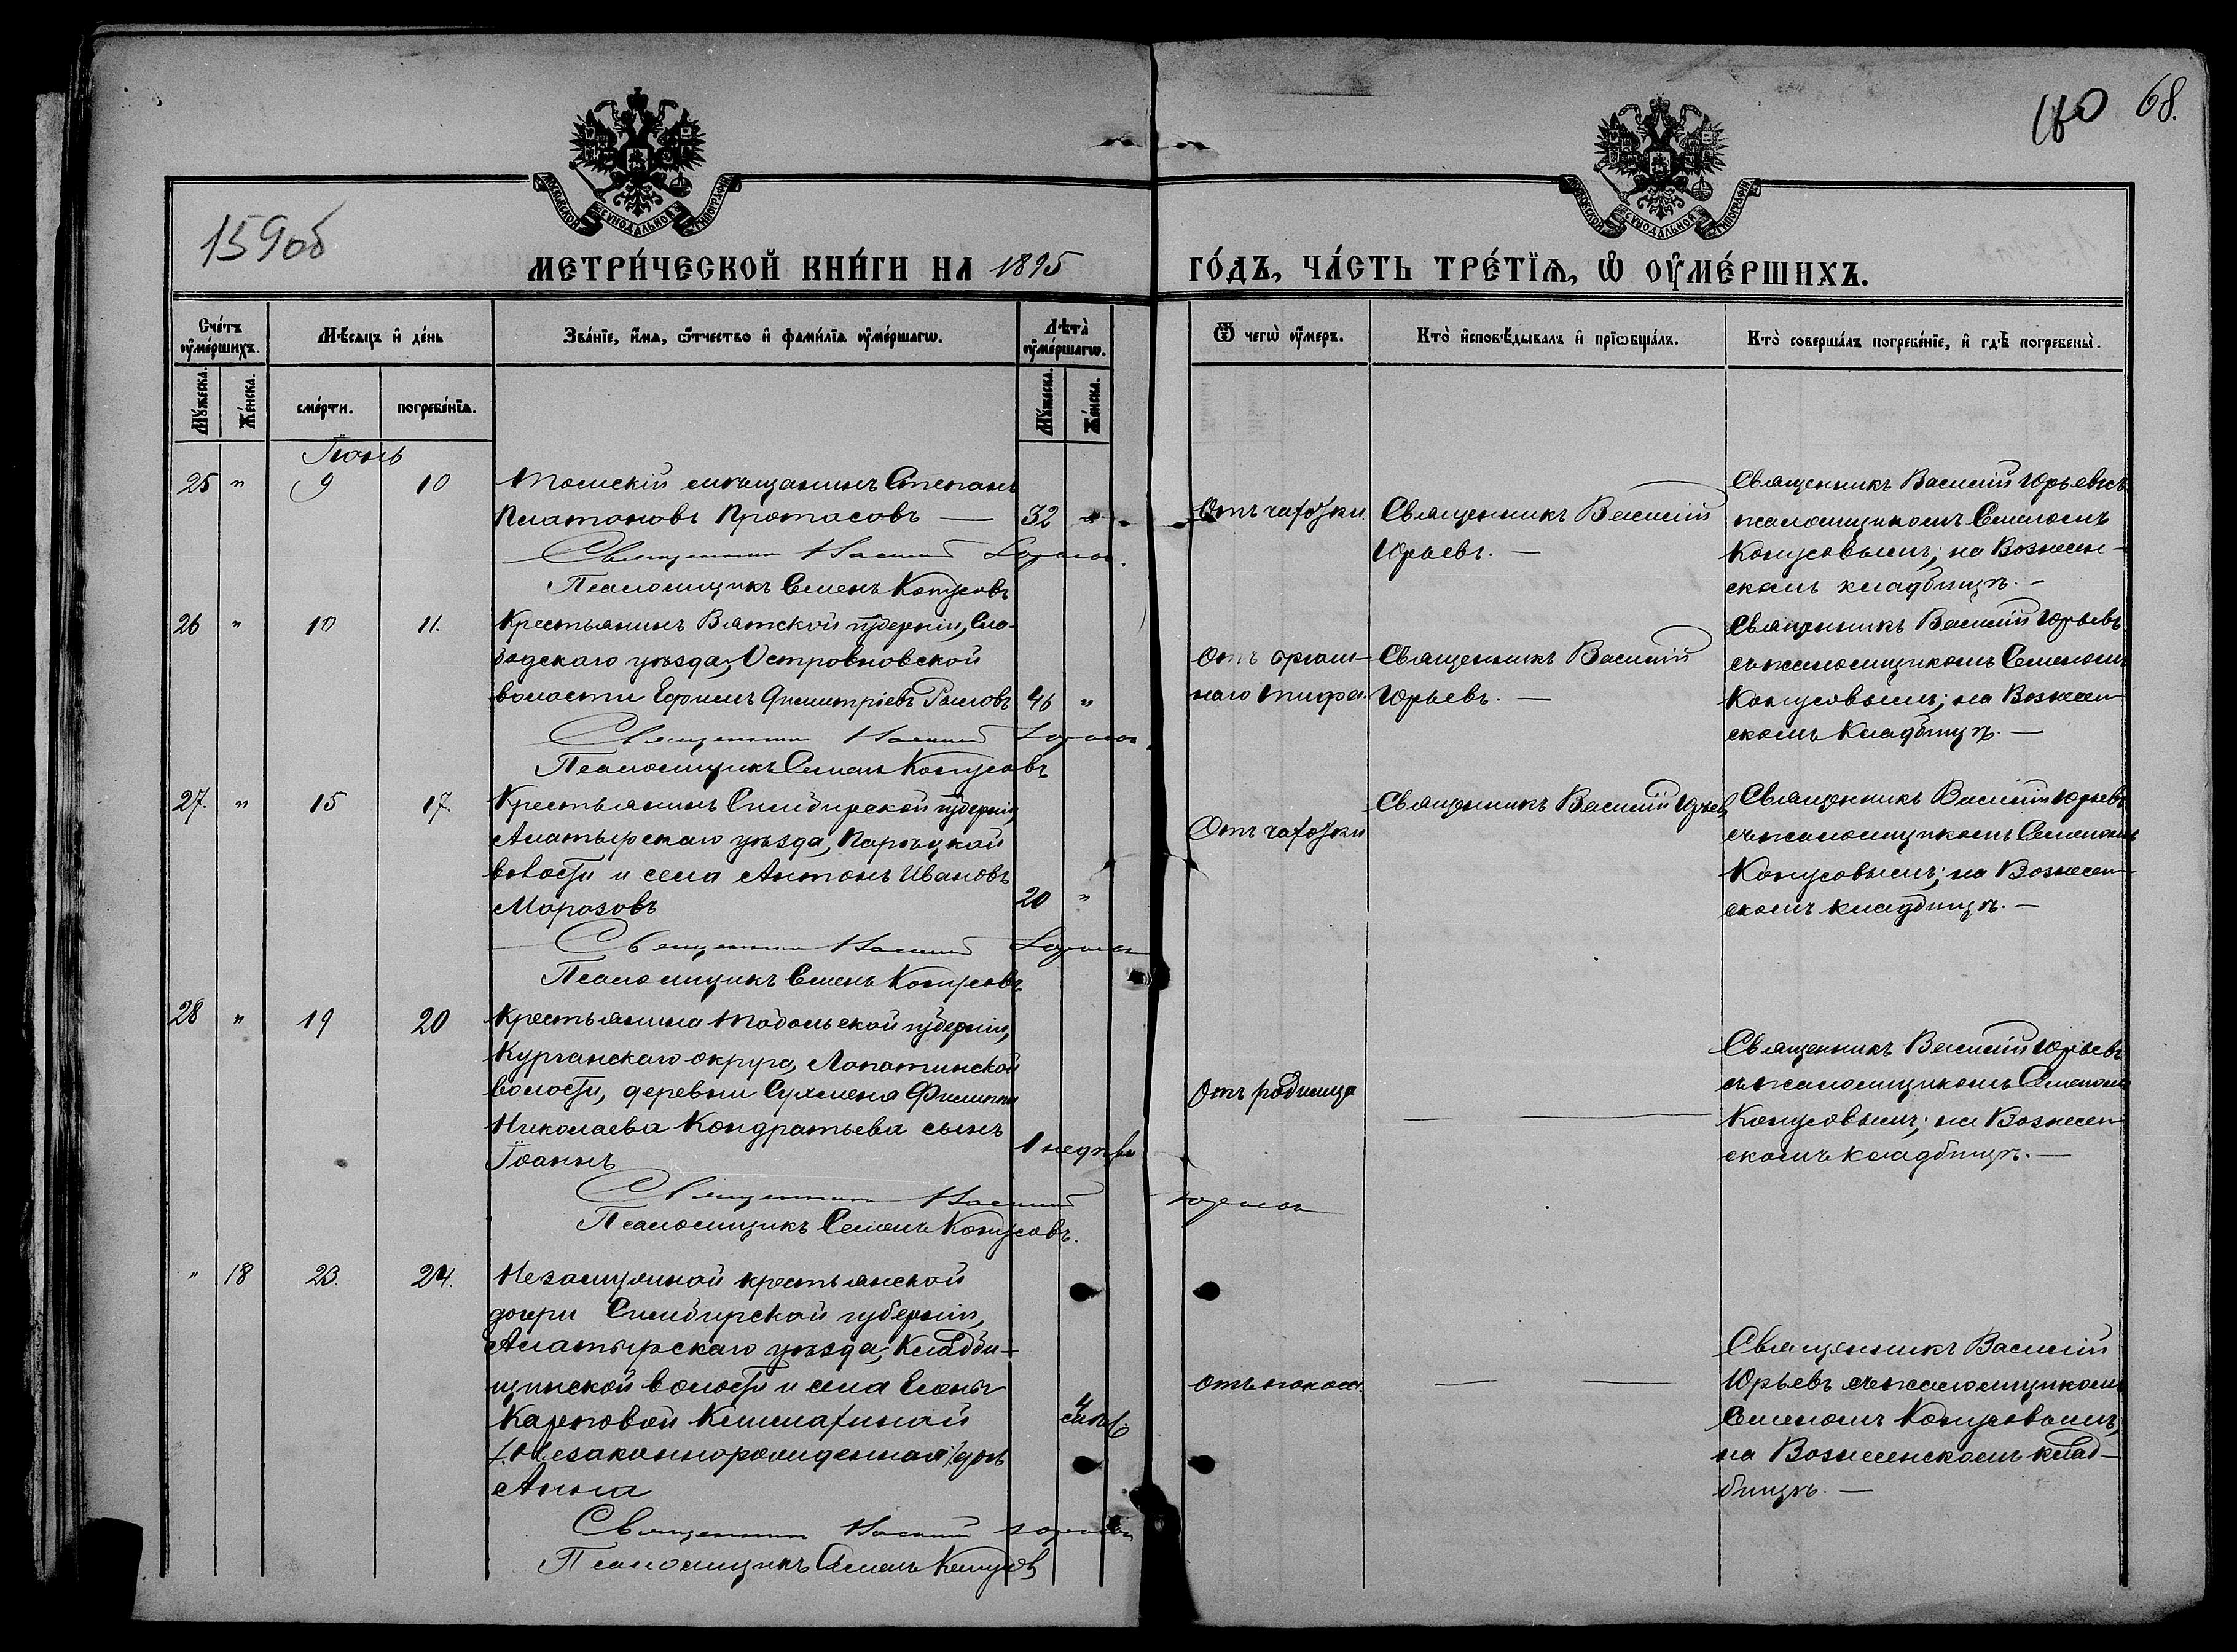 160 68.
159об
МОСКОВСКОЙ СУНОДАЛЬНОЙ ТИПОГРАФІИ
МОСКОВСКОЙ СУНОДАЛЬНОЙ ТИПОГРАФІИ
МЕТРИ́ЧЕСКОЙ КНИ́ГИ НА 1895 ГО́ДЪ, ЧА́СТЬ ТРЕ́ТЇѦ, Ѡ ОУМЕ́РШИХЪ.
Сче́тъ оуме́ршихъ.
Мѣ́сяцъ и де́нь
Зва́нїе, и́мѧ, ѻ́тчество и фами́лїѧ оуме́ршагѡ.
Лѣта̀ оуме́ршагѡ.
Ѿ чегѡ̀ оу́меръ.
Кто̀ исповѣ́дывалъ и прїѡбща́лъ.
Кто̀ соверша́лъ погребе́нїе, и гдѣ̀ погребены̀.
Мꙋжеска.
Же́нска.
сме́рти.
погребе́нїѧ.
Мꙋжеска.
Же́нска.
Іюнь
25 " 9 10
Томскій мѣщанинъ Степанъ
Платоновъ Протасовъ — 32 "
Священникъ Василій Юрьевъ
Псаломщикъ Семенъ Копусовъ
Отъ чахотки
Священникъ Василій
Юрьевъ. —
Священникъ Василій Юрьевъ съ
псаломщикомъ Семеномъ
Копусовымъ; на Вознесен-
скомъ кладбищѣ. —
26 " 10 11.
Крестьянинъ Вятской губерніи, Сло-
бодскаго уѣзда, Островновской
волости Ефимъ Димитріевъ 46 "
Священникъ Василій Юрьевъ
Псаломщикъ Семенъ Копусовъ
Отъ
наго тифа.
Священникъ Василій
Юрьевъ. —
Священникъ Василій Юрьевъ
съ псаломщикомъ Семеномъ
Копусовымъ; на Вознесен-
скомъ кладбищѣ. —
27. " 15 17.
Крестьянинъ Симбирской губерніи,
Алатырскаго уѣзда, Порѣцкой
волости и села Антонъ Ивановъ
Морозовъ 20 "
Священникъ Василій Юрьевъ
Псаломщикъ Семенъ Копусовъ
Отъ чахотки
Священникъ Василій Юрьев
Священникъ Василій Юрьевъ
съ псаломщикомъ Семеномъ
Копусовымъ; на Вознесен-
скомъ кладбищѣ. —
28 " 19 20
Крестьянина Тобольской губерніи,
Курганскаго округа, Лопатинской
волости, деревни Сухмена Филиппа
Николаева Кондратьева сынъ
Іоаннъ 1 недѣли
Священникъ Василій Юрьевъ
Псаломщикъ Семенъ Копусовъ.
Отъ родимца
— —
Священникъ Василій Юрьевъ
съ псаломщикомъ Семеномъ
Копусовымъ; на Вознесен-
скомъ кладбищѣ. —
" 18 23. 24.
Незамужней крестьянской
дочери Симбирской губерніи,
Алатырскаго уѣзда, Кладби-
щинской волости и села Елены
Карповой
/:Незаконнорожденная:/ дочь
Анна
4
Священникъ Василій Юрьевъ
Псаломщикъ Семенъ Копусовъ
Отъ
— —
Священникъ Василій
Юрьевъ съ псаломщикомъ
Семеномъ Копусовымъ,
на Вознесенскомъ клад-
бищѣ. —